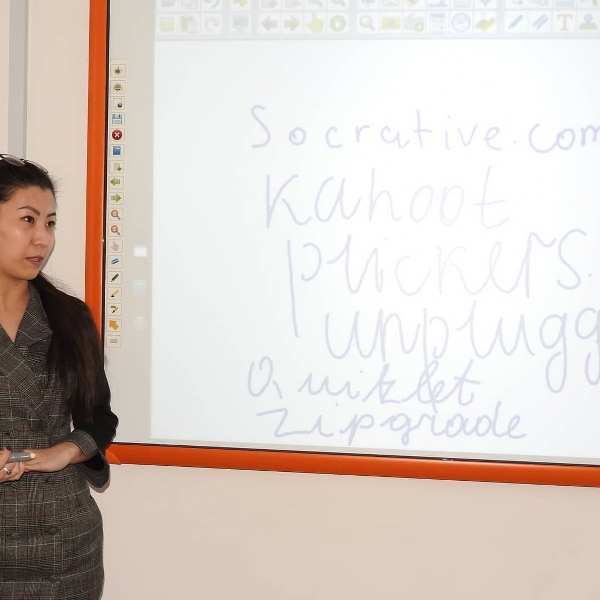 Socrative.com
Kahoot
plickers.
unplugg
Quiklet
Zipgrade